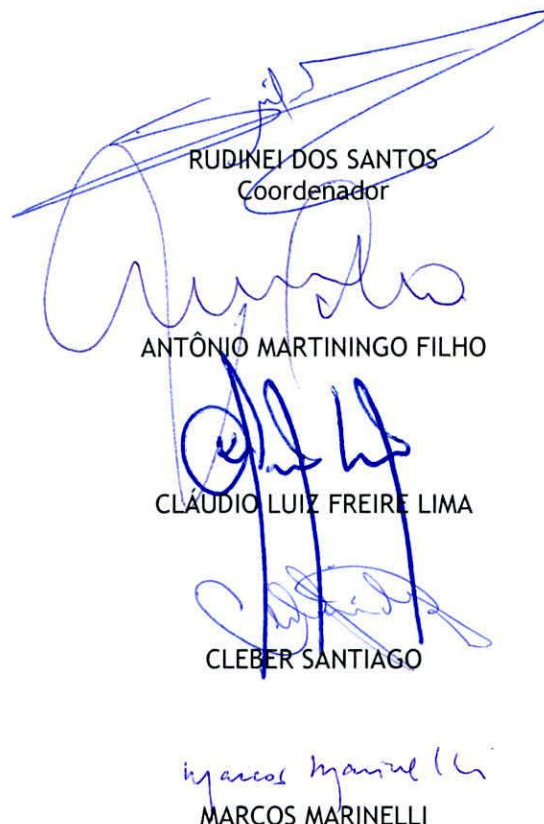 RUDINEI DOS SANTOS
Coordenador
ANTÔNIO MARTININGO FILHO
CLÁUDIO LUIZ FREIRE LIMA
CLEBER SANTIAGO
Marcos Marinelli
MARCOS MARINELLI